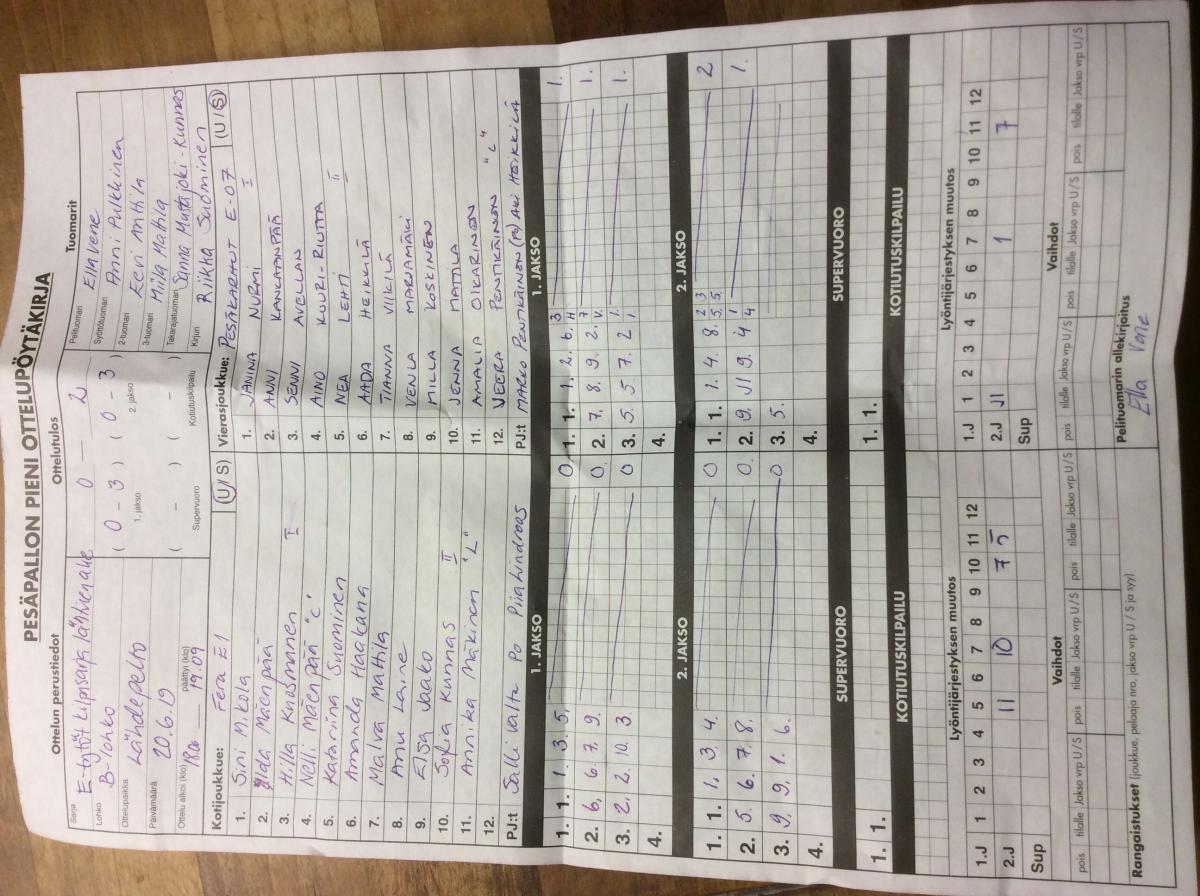 PESÄPALLON PIENI OTTELUPÖYTÄKIRJA
Ottelun perustiedot Ottelutulos Tuomarit
Sarja E-tytöt kilpasarja lähivierailu 0 — 2
Lohko B-lohko ( 0 - 3 ) ( 0 - 3 )
1. jakso 2. jakso
Ottelupaikka Lähdepelto
Päivämäärä 20.6.19 ( - ) ( - )
Ottelu alkoi (klo) 18.00 päättyi (klo) 19.09 Supervuoro Kotiutuskilpailu
Pelituomari Ella Vene
Syöttötuomari Anni Pulkkinen
2-tuomari Eevi Anttila
3-tuomari Miila Mattila
Takarajatuomari Sanna Mutkijoki-Kunnas
Kirjuri Riikka Suominen
Kotijoukkue: Fera E1 (U/S)
1. Sini Mikola
2. Iida Mäenpää
3. Hilla Kuosmanen I
4. Nelli Mäenpää "C"
5. Katariina Suominen
6. Amanda Haakana
7. Malva Mattila
8. Anu Laine
9. Elsa Jaako
10. Sofia Kunnas II
11. Annika Mäkinen "L"
12.
PJ:t Salli Valta Po Piia Lindroos
Vierasjoukkue: PESÄKARHUT E-07 (U/S)
1. JANINA NURMI I
2. ANNI KANKAANPÄÄ
3. SENNI AVELLAN
4. AINO KUURI-RIUTTA
5. NEA LEHTI II
6. AADA HEIKKILÄ
7. TIANNA VIIKILÄ
8. VENLA MARJAMÄKI
9. MILLA KOSKINEN
10. JENNA MATTILA
11. AMALIA OIKARINEN
12. VEERA PENTIKÄINEN "L"
PJ:t MARKO PENTIKÄINEN (PJ) AKI HEIKKILÄ
1. JAKSO 1. JAKSO
1. 1. 1. 3. 5. 0
2. 6. 6. 7. 9. 0
3. 2. 2. 10. 3. 0
4.
1. 1. 1. 2. 6. 1.
2. 7. 8. 9. 2. 1.
3. 5. 5 7. 2 1.
4.
2. JAKSO 2. JAKSO
1. 1. 1. 3. 4. 0
2. 5. 6. 7. 8. 0.
3. 9. 9. 1. 6. 0
4.
1. 1. 1. 4. 8. 2
2. 9. J1 9. 4 1.
3. 5.
4.
SUPERVUORO SUPERVUORO
1. 1. 1. 1.
KOTIUTUSKILPAILU KOTIUTUSKILPAILU
Lyöntijärjestyksen muutos Lyöntijärjestyksen muutos
1.J 1 2 3 4 5 6 7 8 9 10 11 12
2.J 11 10 7 5
Sup
1.J 1 2 3 4 5 6 7 8 9 10 11 12
2.J J1 1 7
Sup
Vaihdot Vaihdot
pois tilalle Jakso vrp U/S pois tilalle Jakso vrp U/S pois tilalle Jakso vrp U/S pois tilalle Jakso vrp U/S
Rangaistukset (joukkue, pelaaja nro, jakso vrp U / S ja syy)
Pelituomarin allekirjoitus
Ella Vene